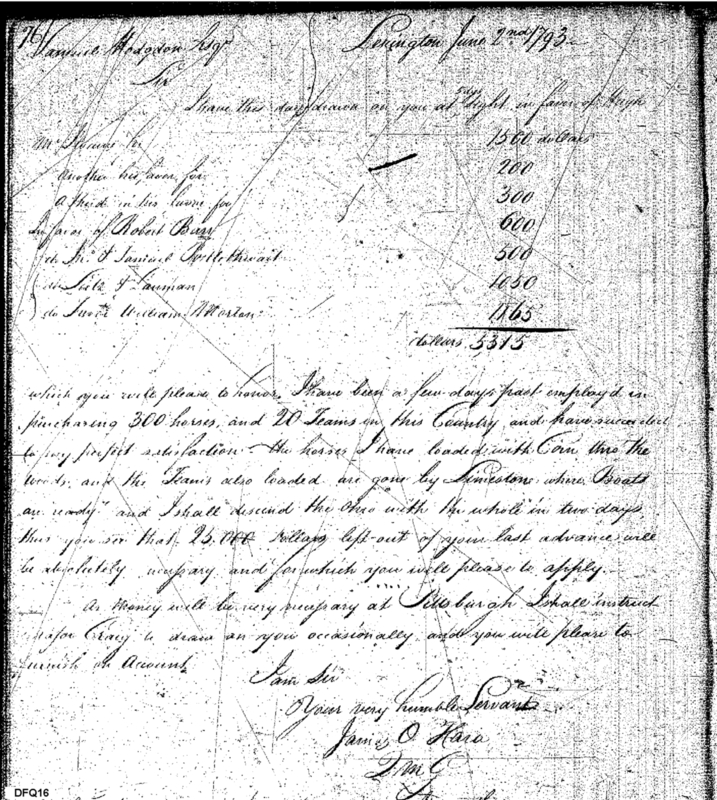 76
Samuel Hodgdon Esqr Lexington June 2nd 1793
Sir
I have this day drawn on you at sight in favor of Hugh
1500 dollars
Another his favor for 200
A third in his favor for 300
In favor of Robert Barr 600
do Jno & Samuel Postlethwait 500
do Seitz & Lauman 1050
do William Morton 1165
dollars 5315
which you will please to honor. I have been a few days past employ'd in
purchasing 300 horses, and 20 Teams in this Country and have succeeded
to my perfect satisfaction - the horses I have loaded with Corn thro the
Woods, and the Teams also loaded are gone by Limestone where Boats
are ready and I shall descend the Ohio with the whole in two days
thus you see that 25.000 Dollars left out of your last advance will
be absolutely necessary and for which you will please to apply.
As money will be very necessary at Pittsburgh I shall instruct
Major Craig to draw on you occasionally and you will please to
furnish on Account
I am Sir
Your very humble Servant
James O Hara
QMG
DFQ16